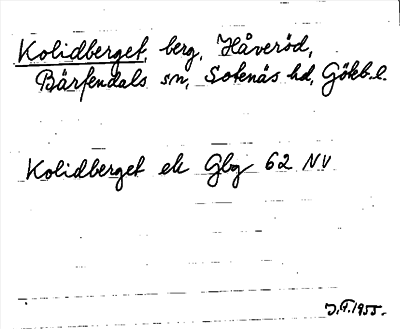 Kolidberget, berg, Håveröd,
Bärfendals sn, Sotenäs hd, Götéb. l.
Kolidberget ek Gbg 62 NV
J.F. 1955.